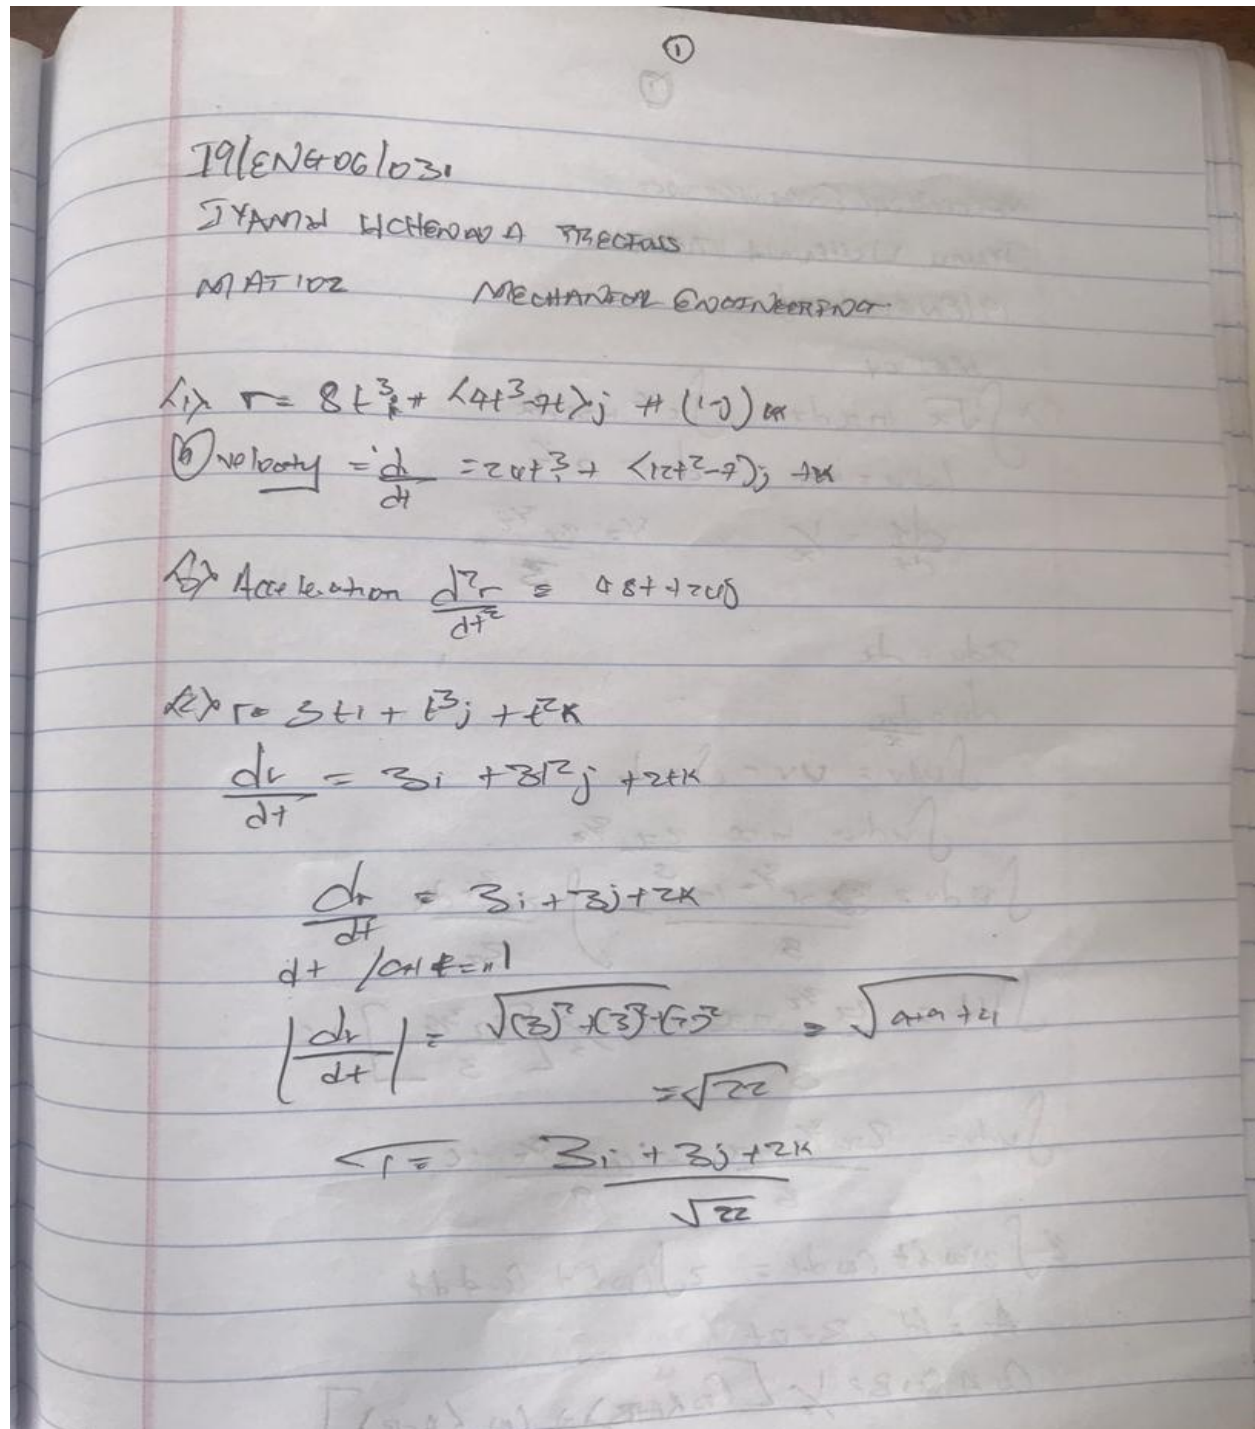 ①
19/ENG06/031
MAT102 MECHANICAL ENGINEERING
<1> r = 8t³i + <4t³-7t>j + (1-)
velocity = d/dt = 24t³ + <12t²-7)j
Acceleration d²r/dt² = 48t + 24
<2> r = 3ti + t³j + t²k
dr/dt = 3i + 3t²j + 2tk
dr/dt = 3i + 3j + 2k
dt t = 1
|dr/dt| = √(3)² + (3)² + (2)² = √9+9+4
= √22
T = 3i + 3j + 2k/√22